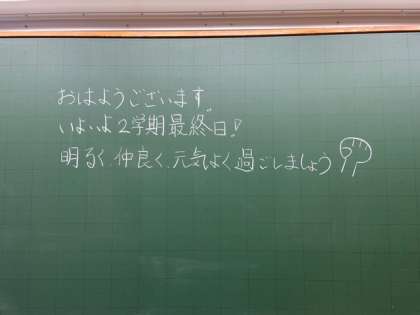 おはようございます。
いよいよ2学期最終日!
明るく、仲良く、元気よく過ごしましょう